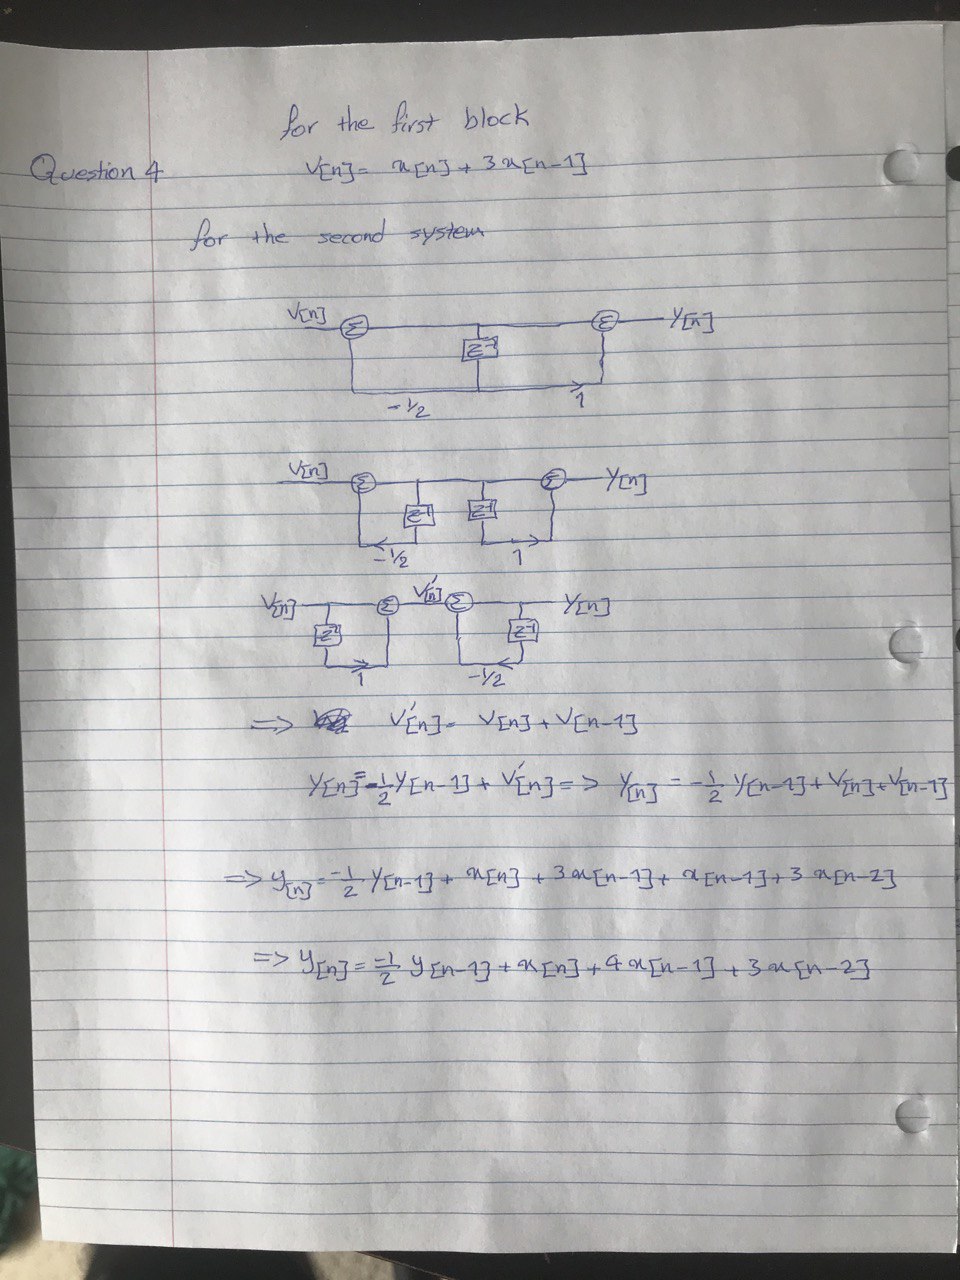 for the first block
Question 4
V[n] = x[n] + 3x[n-1]
for the second system
V[n] Σ Σ Y[n]
Z⁻¹
-1/2 1
V[n] Σ Σ Y[n]
Z⁻¹ Z⁻¹
-1/2 1
V[n] Σ V'[n] Σ Y[n]
Z⁻¹ Z⁻¹
1 -1/2
=> V'[n] = V[n] + V[n-1]
Y[n] = -1/2 Y[n-1] + V'[n] => Y[n] = -1/2 Y[n-1] + V[n] + V[n-1]
=> y[n] = -1/2 Y[n-1] + x[n] + 3x[n-1] + x[n-1] + 3x[n-2]
=> y[n] = -1/2 y[n-1] + x[n] + 4x[n-1] + 3x[n-2]